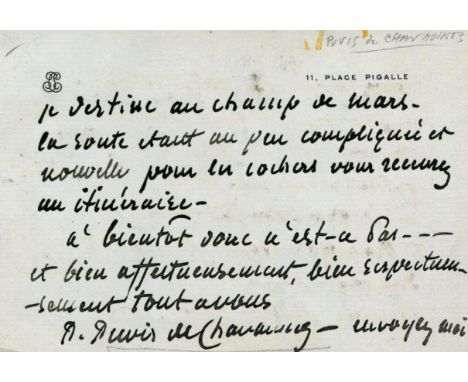 PUVIS de CHAVANNES
11, PLACE PIGALLE
je destine au champ de mars-
la route etant un peu compliquée et
nouvelle pour les cochers vous recevrez
un itinéraire-
à bientôt donc n'est-ce pas---
et bien affectueusement, bien respectueu-
-sement tout a vous
P. Puvis de Chavannes - envoyez moi